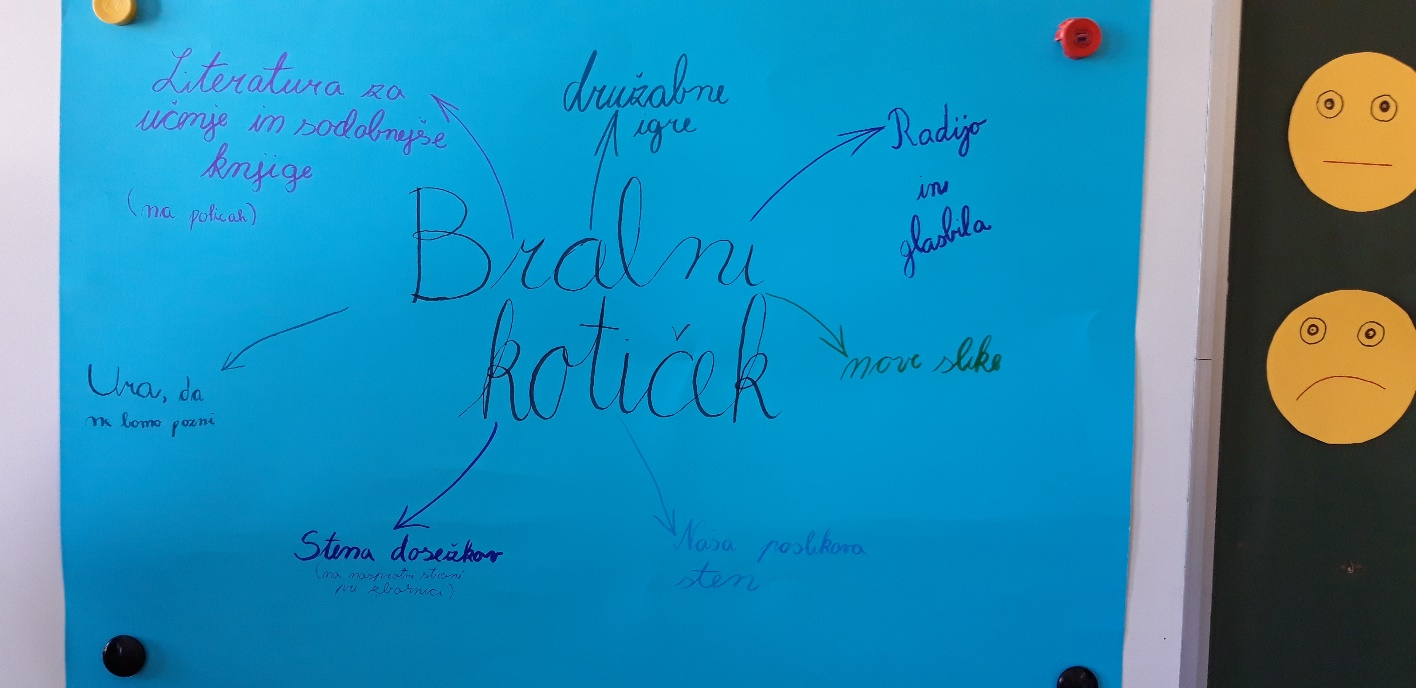 Literatura za
učenje in sodobnejše
knjige
(na policah)
družabne
igre
Radijo
in
glasbila
Bralni
kotiček
nove slike
Ura, da
ne bomo pozni
Stena dosežkov
(na nasprotni strani
pri zbornici)
Naša poslikava
sten